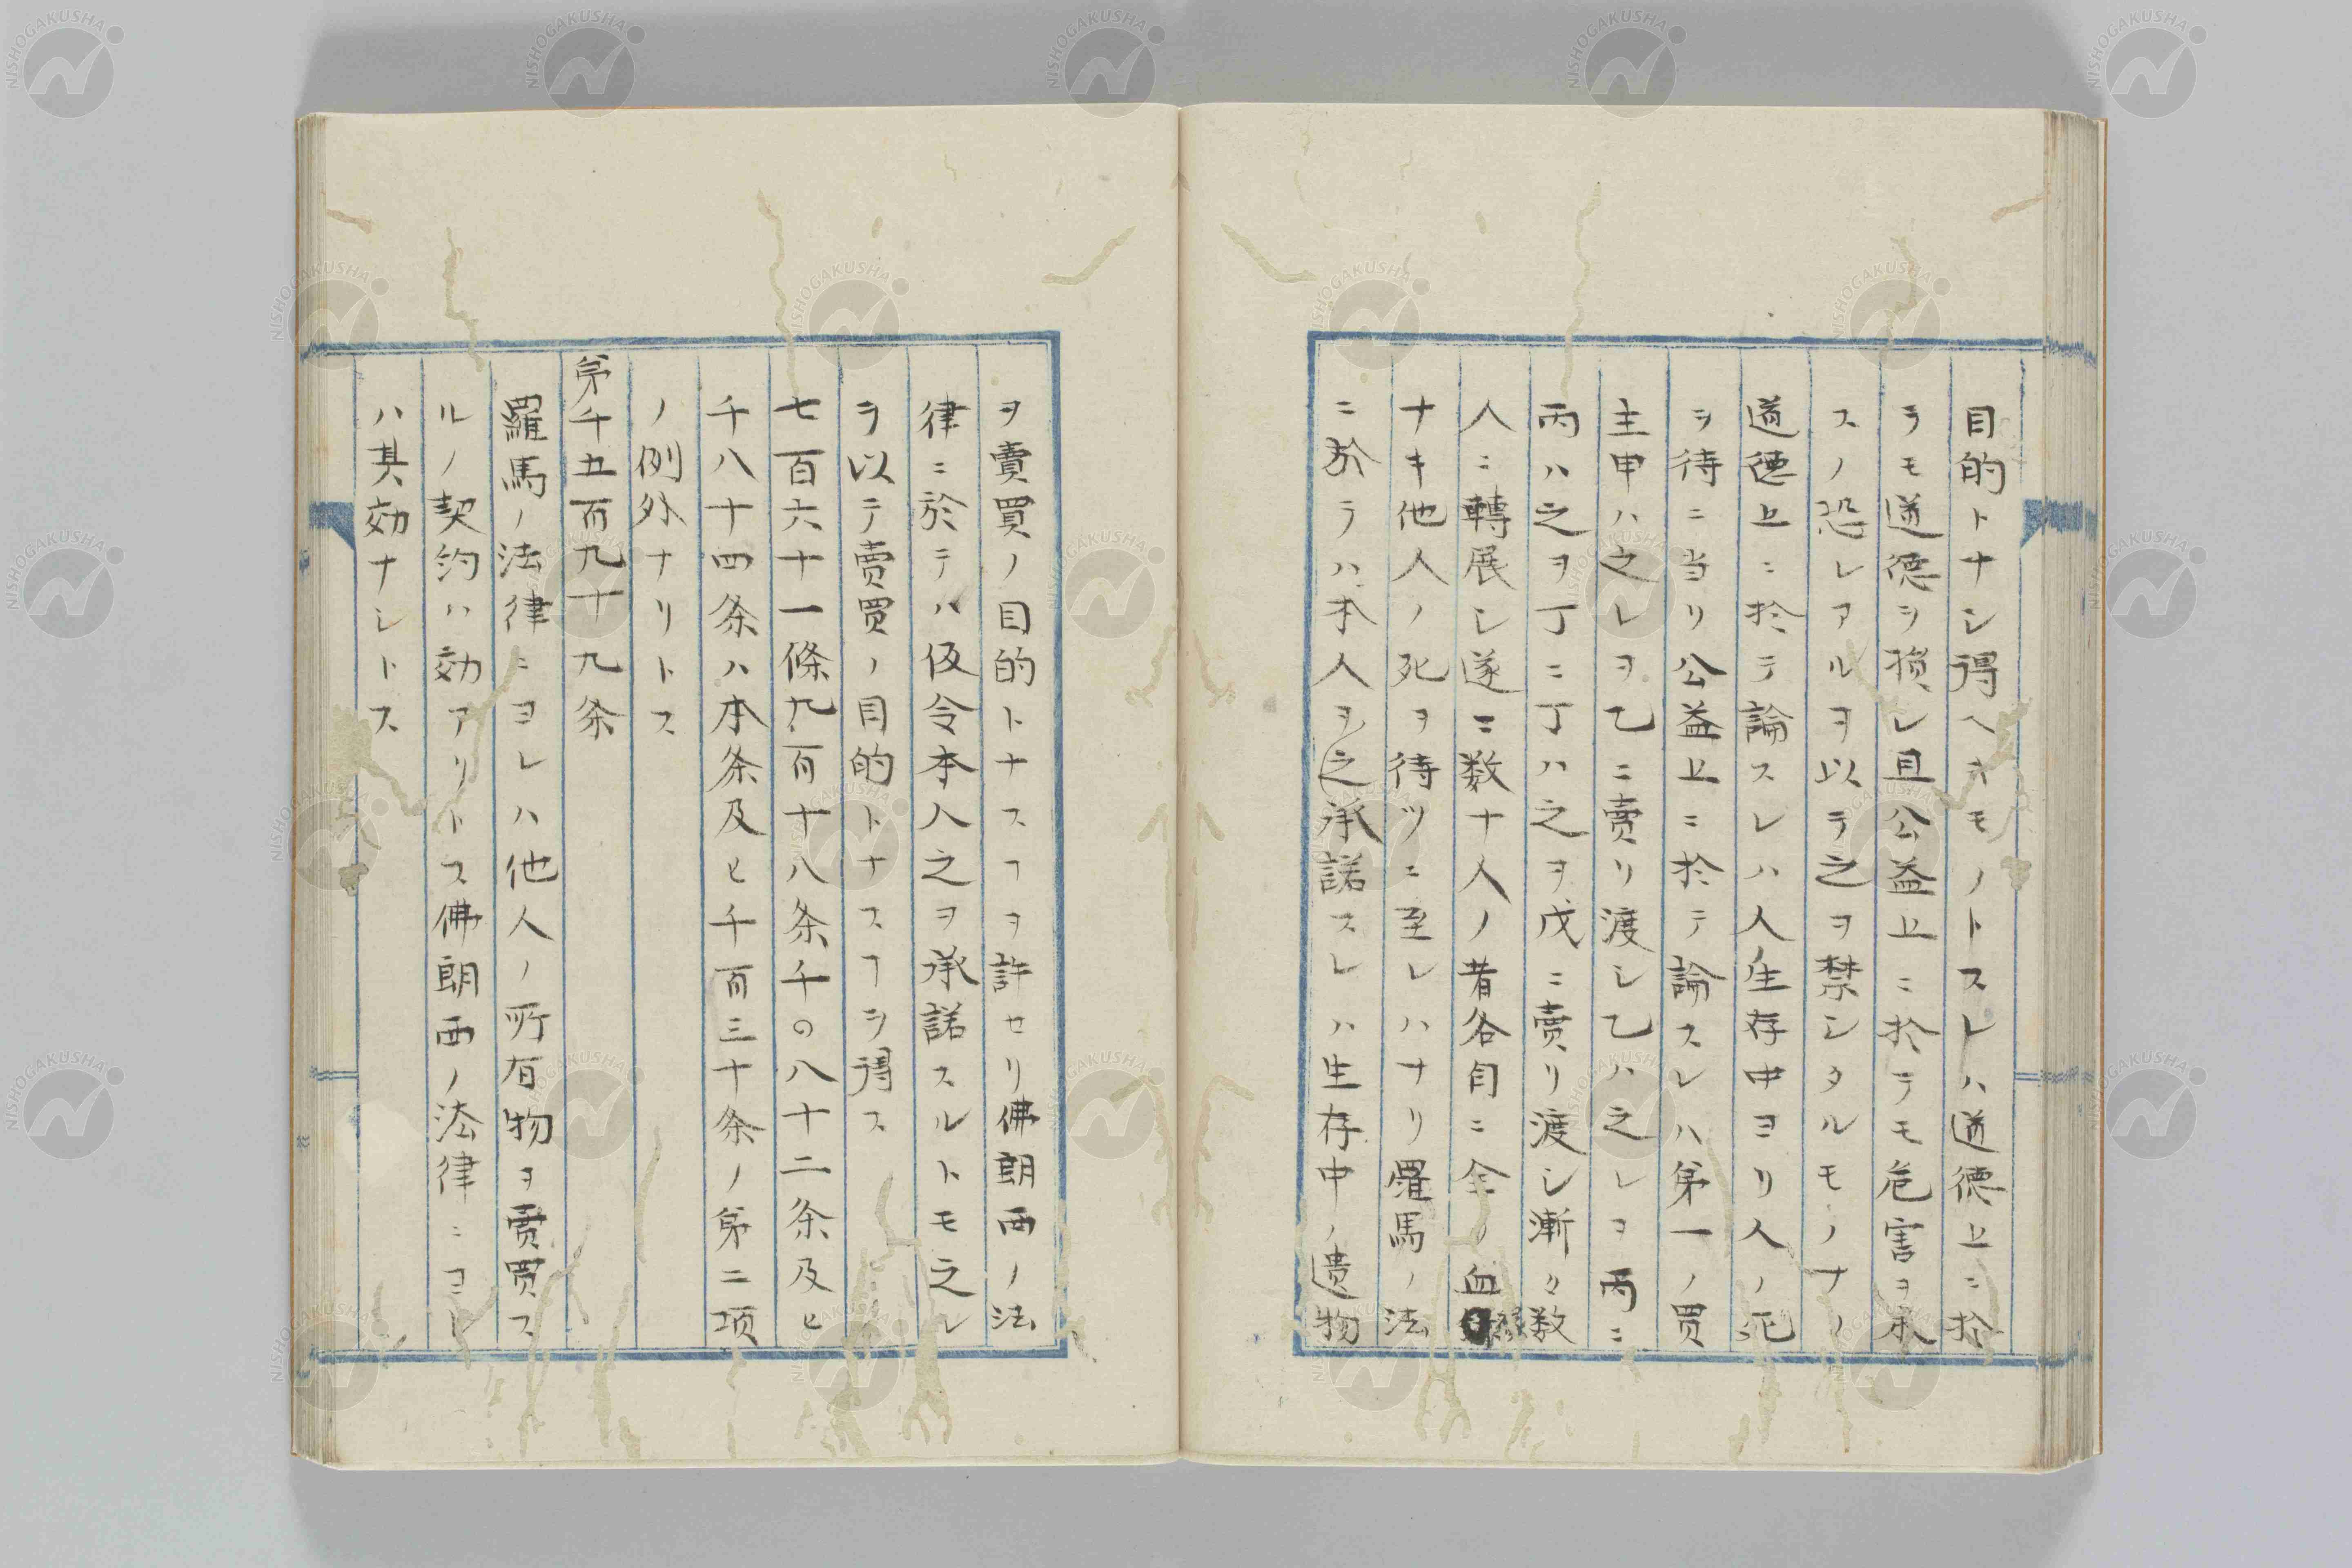 目的トナシ得ヘキモノトスレハ道徳上ニ於
ラモ道徳ヲ損シ且公益上ニ於テモ危害ヲ来
スノ恐レアルヲ以テ之ヲ禁シタルモノナリ
道徳上ニ於テ論スレハ人生存中ヨリ人ノ死
ヲ待ニ当リ公益上ニ於テ論スレハ第一ノ買
主甲ハ之レヲ乙ニ賣リ渡シ乙ハ之レヲ丙ニ
丙ハ之ヲ丁ニ丁ハ之ヲ戊ニ賣リ渡シ漸々数
人ニ轉展シ遂ニ数十人ノ者各自ニ全ノ血縁
ナキ他人ノ死ヲ待ツニ至レハナリ羅馬ノ法
ニ於テハ本人ヲ之承諾スレハ生存中ノ遺物
ヲ賣買ノ目的トナスヿヲ許セリ佛朗西ノ法
律ニ於テハ仮令本人之ヲ承諾スルトモ之レ
ヲ以テ賣買ノ目的トナスヿヲ得ス
七百六十一條九百十八条千〇八十二条及ヒ
千八十四条ハ本条及ヒ千百三十条ノ第二項
ノ例外ナリトス
第千五百九十九条
羅馬ノ法律ニヨレハ他人ノ所有物ヲ賣買ス
ルノ契約ハ効アリトス佛朗西ノ法律ニヨレ
ハ其効ナシトス
NISHOGAKUSHA